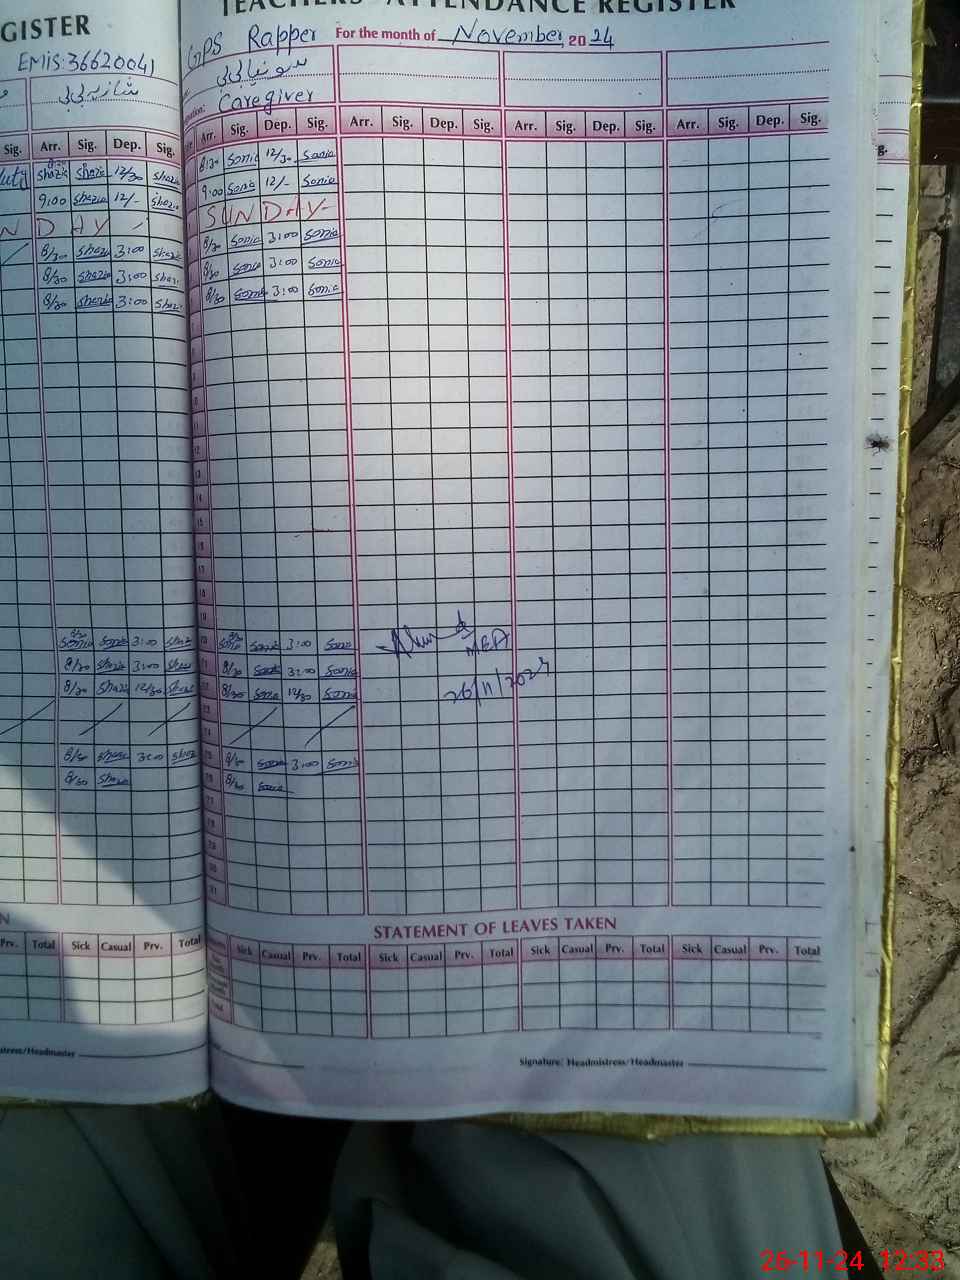 GISTER
EMIS: 36620041
شازیہ بی بی
Sig. Arr. Sig. Dep. Sig.
8/30 Shazia Shazia 12/30 Shazia
9:00 Shazia 12/- Shazia
N D A Y
8/30 Shazia 3:00 Shazi
8/30 Shazia 3:00 Shazi
8/30 Shazia 3:00 Shazi
8/30 Sonia Sonia 3:00 Shaz
8/30 Shazia 3:00 Shazi
8/30 Shazia 12/30 Shazi
8/30 Shazia 3:00 Shaz
8/30 Shazia
N
Prv. Total Sick Casual Prv. Total
stress/Headmaster
TEACHERS' ATTENDANCE REGISTER
GPS Rapper For the month of November, 2024
سونیا بی بی
Caregiver
Arr. Sig. Dep. Sig. Arr. Sig. Dep. Sig. Arr. Sig. Dep. Sig. Arr. Sig. Dep. Sig.
8/30 Sonia 12/30 Sonia
9:00 Sonia 12/- Sonia
SUNDAY
8/30 Sonia 3:00 Sonia
8/30 Sonia 3:00 Sonia
8/30 Sonia 3:00 Sonia
8/30 Sonia Sonia 3:00 Sonia
MEA
8/30 Sonia 3:00 Sonia
26/11/2024
8/30 Sonia 12/30 Sonia
8/30 Sonia 3:00 Sonia
8/30 Sonia
STATEMENT OF LEAVES TAKEN
Sick Casual Prv. Total Sick Casual Prv. Total Sick Casual Prv. Total Sick Casual Prv. Total
Signature: Headmistress/Headmaster
26-11-24 12:33